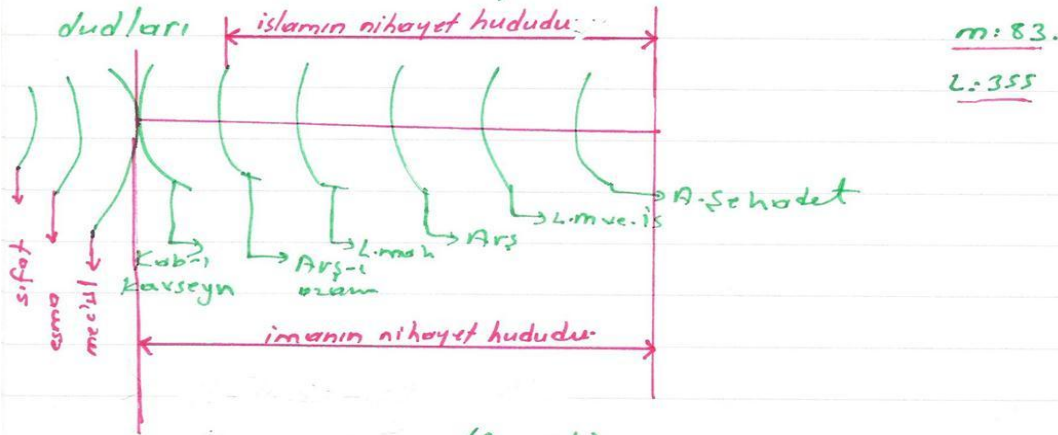 dudları
islamın nihayet hududu
m: 83.
L: 355
A. Şehadet
L. mve. is
Arş
L. mah
Arş-ı
azam
Kab-ı
Kavseyn
sıfat
esma
imanın nihayet hududu